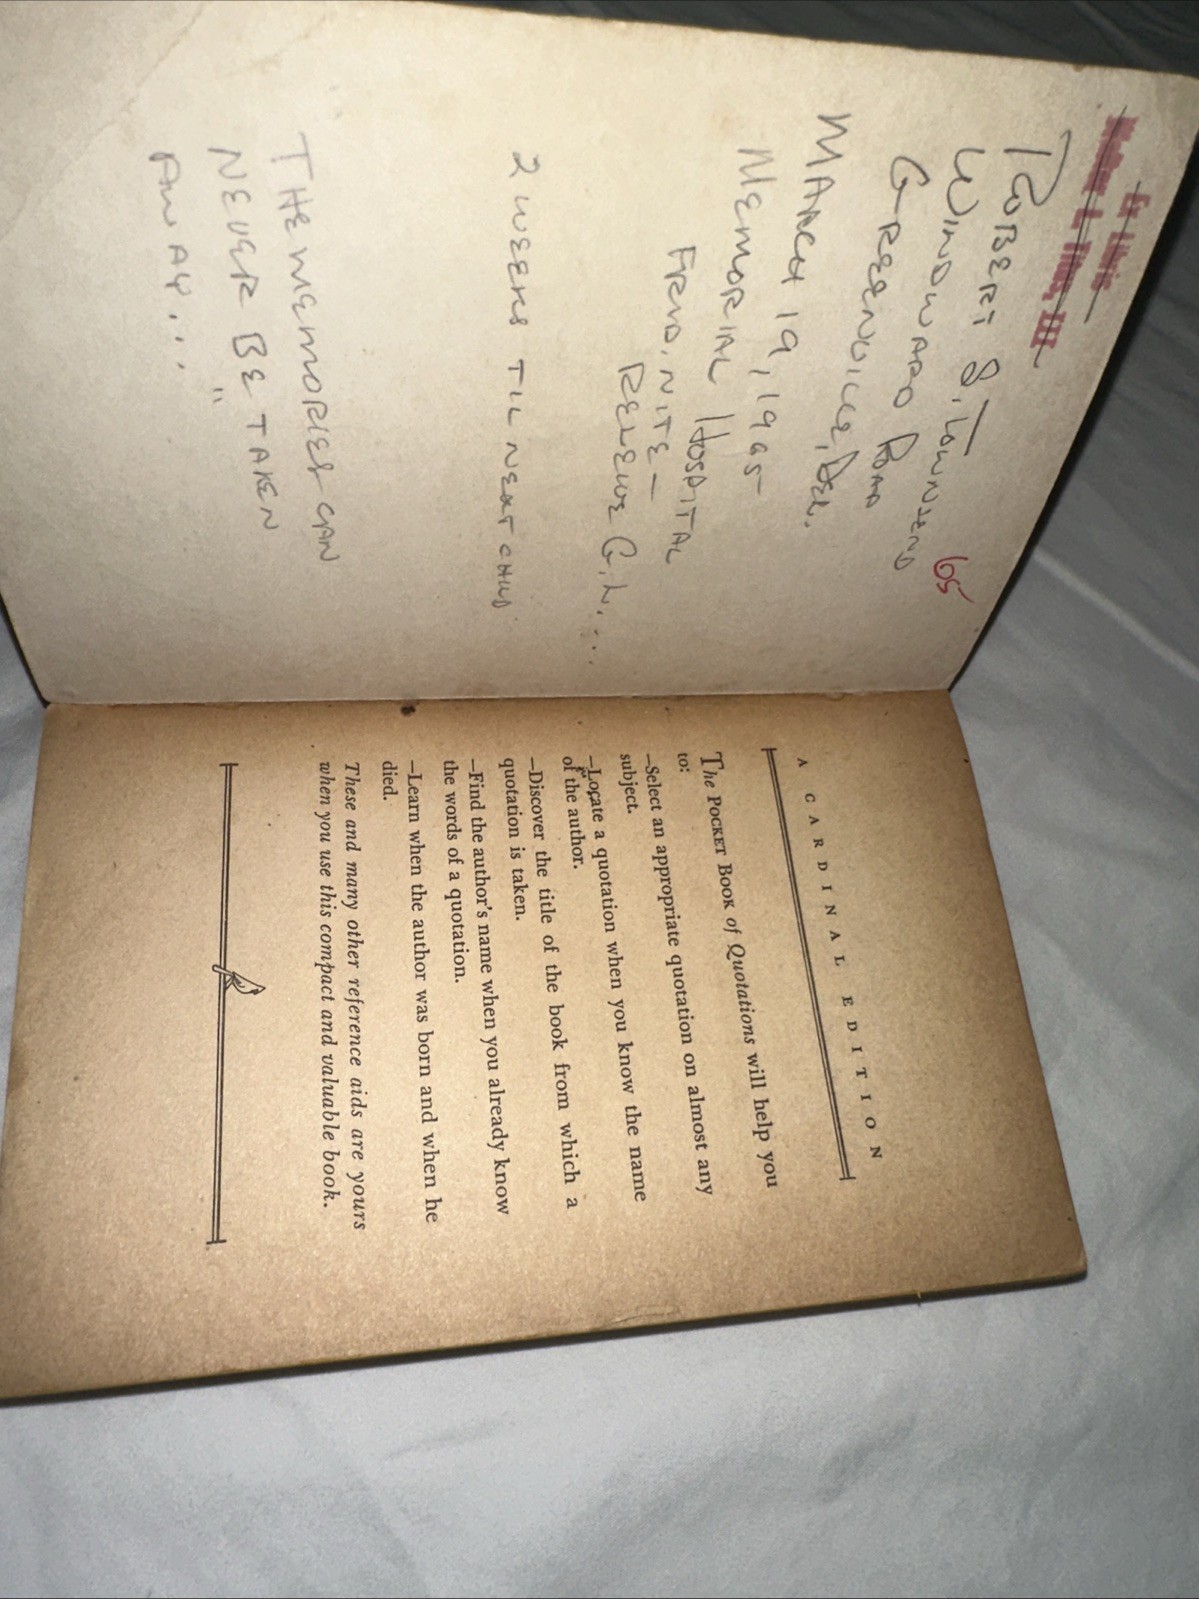 Ex Libris
III
ROBERT S. TOWNSEND
65
WINDWARD ROAD
GREENVILLE, DEL.
MARCH 19, 1965
MEMORIAL HOSPITAL
FRND. NITE —
RELEIVE G.L. ...
2 WEEKS TIL NEXT CHILD
THE MEMORIES CAN
NEVER BE TAKEN
AWAY... "
A CARDINAL EDITION
The POCKET BOOK of Quotations will help you
to:
—Select an appropriate quotation on almost any
subject.
—Locate a quotation when you know the name
of the author.
—Discover the title of the book from which a
quotation is taken.
—Find the author's name when you already know
the words of a quotation.
—Learn when the author was born and when he
died.
These and many other reference aids are yours
when you use this compact and valuable book.